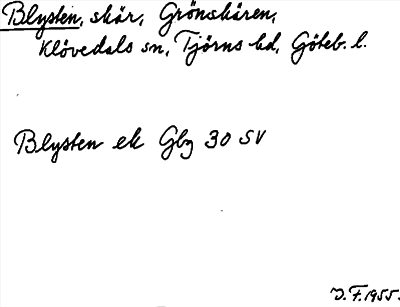 Blysten, skär, Grönskären,
Klövedals sn, Tjörns hd, Göteb. l.
Blysten ek Gbg 30 SV
J. F. 1955.